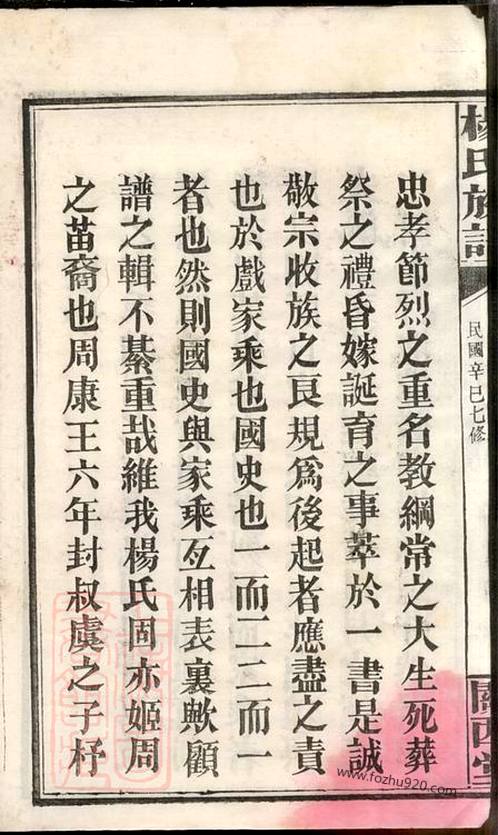 楊氏族譜
民國辛巳七修
關西堂
忠孝節烈之重名教綱常之大生死葬
祭之禮昏嫁誕育之事萃於一書是誠
敬宗收族之良規為後起者應盡之責
也於戲家乘也國史也一而二二而一
者也然則國史與家乘互相表裏歟顧
譜之輯不綦重哉維我楊氏固亦姬周
之苗裔也周康王六年封叔虞之子杼
www.fozhu920.com